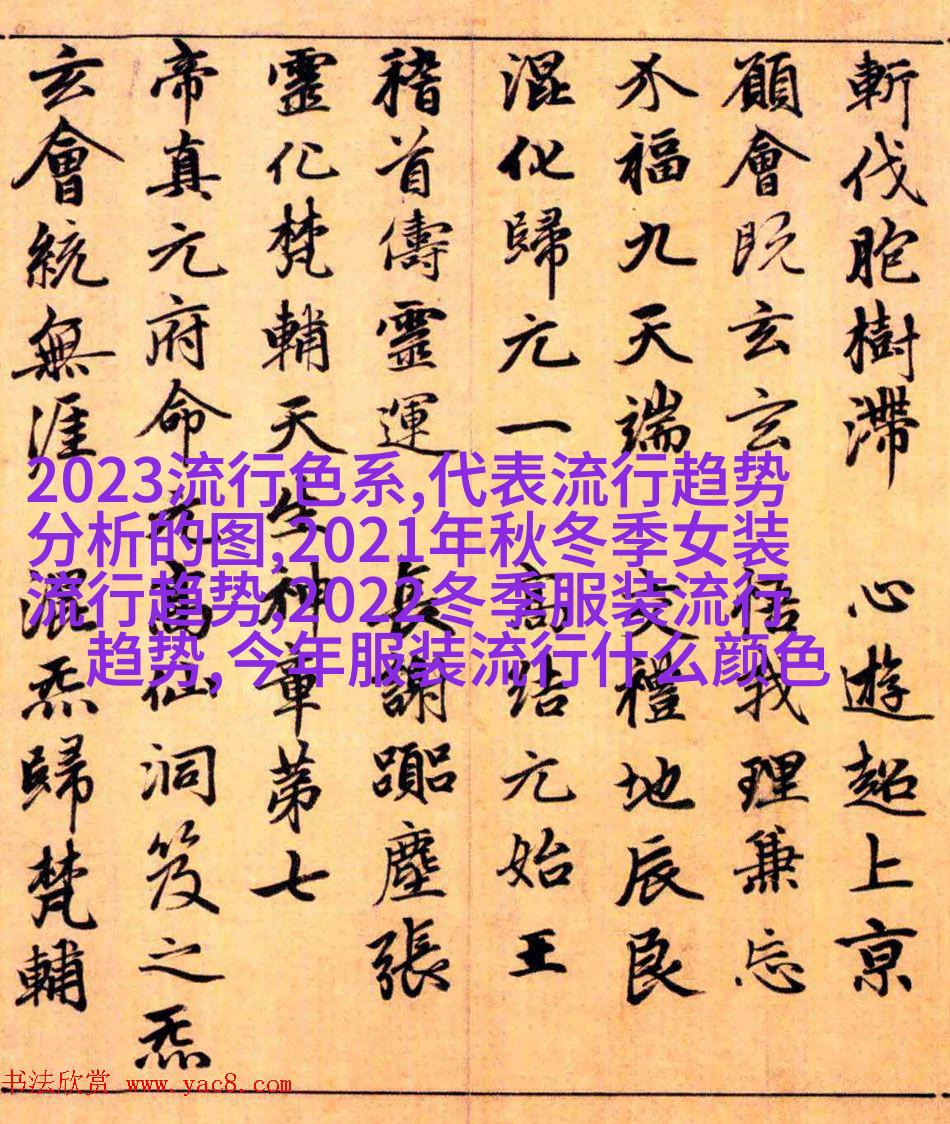 斬伐胞樹滯 心遊超上京
願會既玄玄 悟我理兼忘
福九天端 交禮地辰良
混化歸元一 高結元始王
稽首儔靈運 長謝塵張
靈化梵輔天生神章第七
帝真元府命元高仙洞笈之炁
玄會統無涯 混炁歸梵輔
2023流行色系,代表流行趋势
分析的图,2021年秋冬季女装
流行趋势,2022冬季服装流行
趋势, 今年服装流行什么颜色
书法欣赏 www.yac8.com